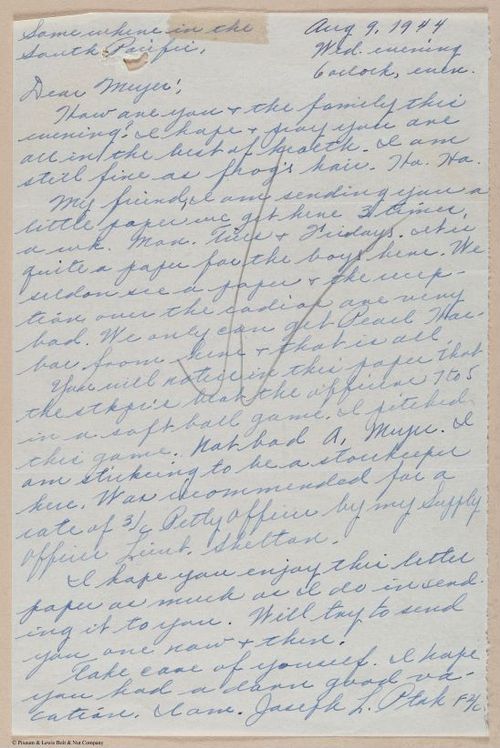 Somewhere in the
South Pacific,
Aug 9, 1944
Wed. evening
6 oclock, even.
Dear Meyer!,
How are you & the family this
evening? I hope & pray you are
all in the best of health. I am
still fine as frog's hair. Ha. Ha.
My friend, I am sending you a
little paper we get here 3 times,
a wk. Mon. Tues & Fridays. It is
quite a paper for the boys here. We
seldon see a paper & the recep-
tion over the radios are very
bad. We only can get Pearl Har-
bor from here & that is all.
You will notice in this paper that
the stkprs beat the officers 7 to 5
in a soft ball game. I pitched
this game. Not bad A, Meyer. I
am strikeing to be a storekeeper
here. Was recommended for a
rate of 3/c Petty Officer by my Supply
Officer Lieut. Shelton.
I hope you enjoy this letter
paper as much as I do in send-
ing it to you. Will try to send
you one now & then.
Take care of yourself. I hope
you had a darn good va-
cation. I am. Joseph L. Ptak F 2/c
© Pixnum & Lewis Bolt & Nut Company